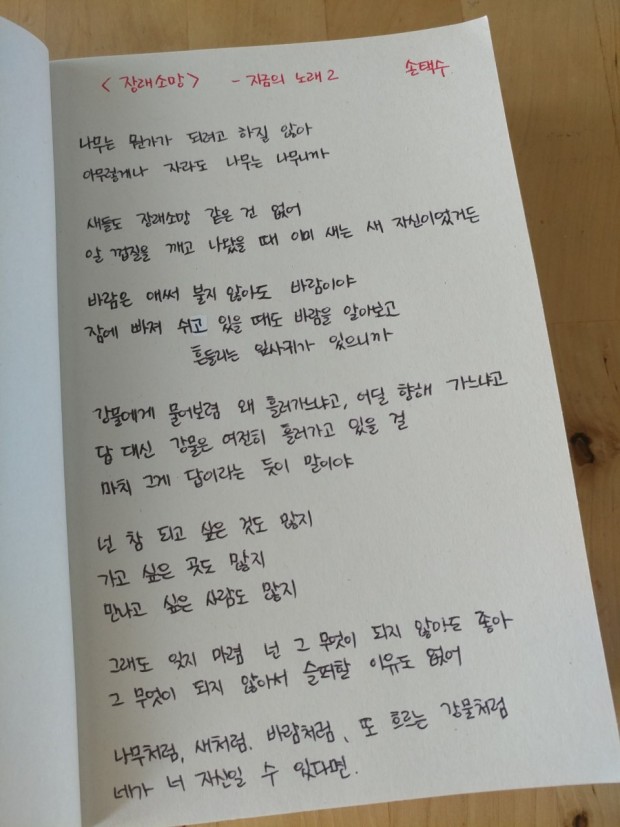 <장래소망> - 지금의 노래 2 손택수
나무는 뭔가가 되려고 하질 않아
아무렇게나 자라도 나무는 나무니까
새들도 장래소망 같은 건 없어
알 껍질을 깨고 나왔을 때 이미 새는 새 자신이었거든
바람은 애써 불지 않아도 바람이야
잠에 빠져 쉬고 있을 때도 바람을 알아보고
흔들리는 잎사귀가 있으니까
강물에게 물어보렴 왜 흘러가느냐고, 어딜 향해 가느냐고
답 대신 강물은 여전히 흘러가고 있을 걸
마치 그게 답이라는 듯이 말이야
넌 참 되고 싶은 것도 많지
가고 싶은 곳도 많지
만나고 싶은 사람도 많지
그래도 잊지 마렴 넌 그 무엇이 되지 않아도 좋아
그 무엇이 되지 않아서 슬퍼할 이유도 없어
나무처럼, 새처럼, 바람처럼, 또 흐르는 강물처럼
네가 너 자신일 수 있다면.